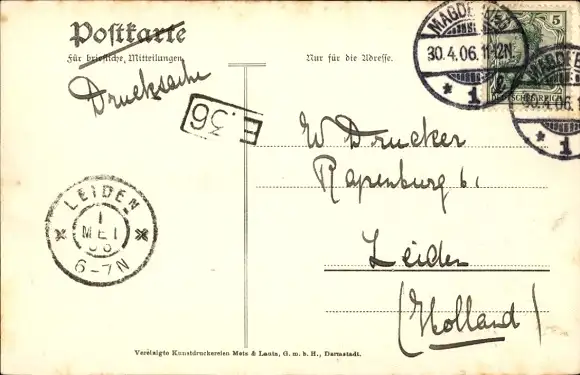 Postkarte
Für briefliche Mitteilungen
Nur für die Adresse.
Drucksache
MAGDEBURG
30.4.06.11-12N.
* 1
5
DEUTSCHES REICH
MAGDEB
30.4.06.11
* 1
E.36
W Drucker
Rapenburg 61
Leiden
(Holland)
LEIDEN
1
MEI
06
6-7N
Vereinigte Kunstdruckereien Metz & Lautz, G. m. b. H., Darmstadt.